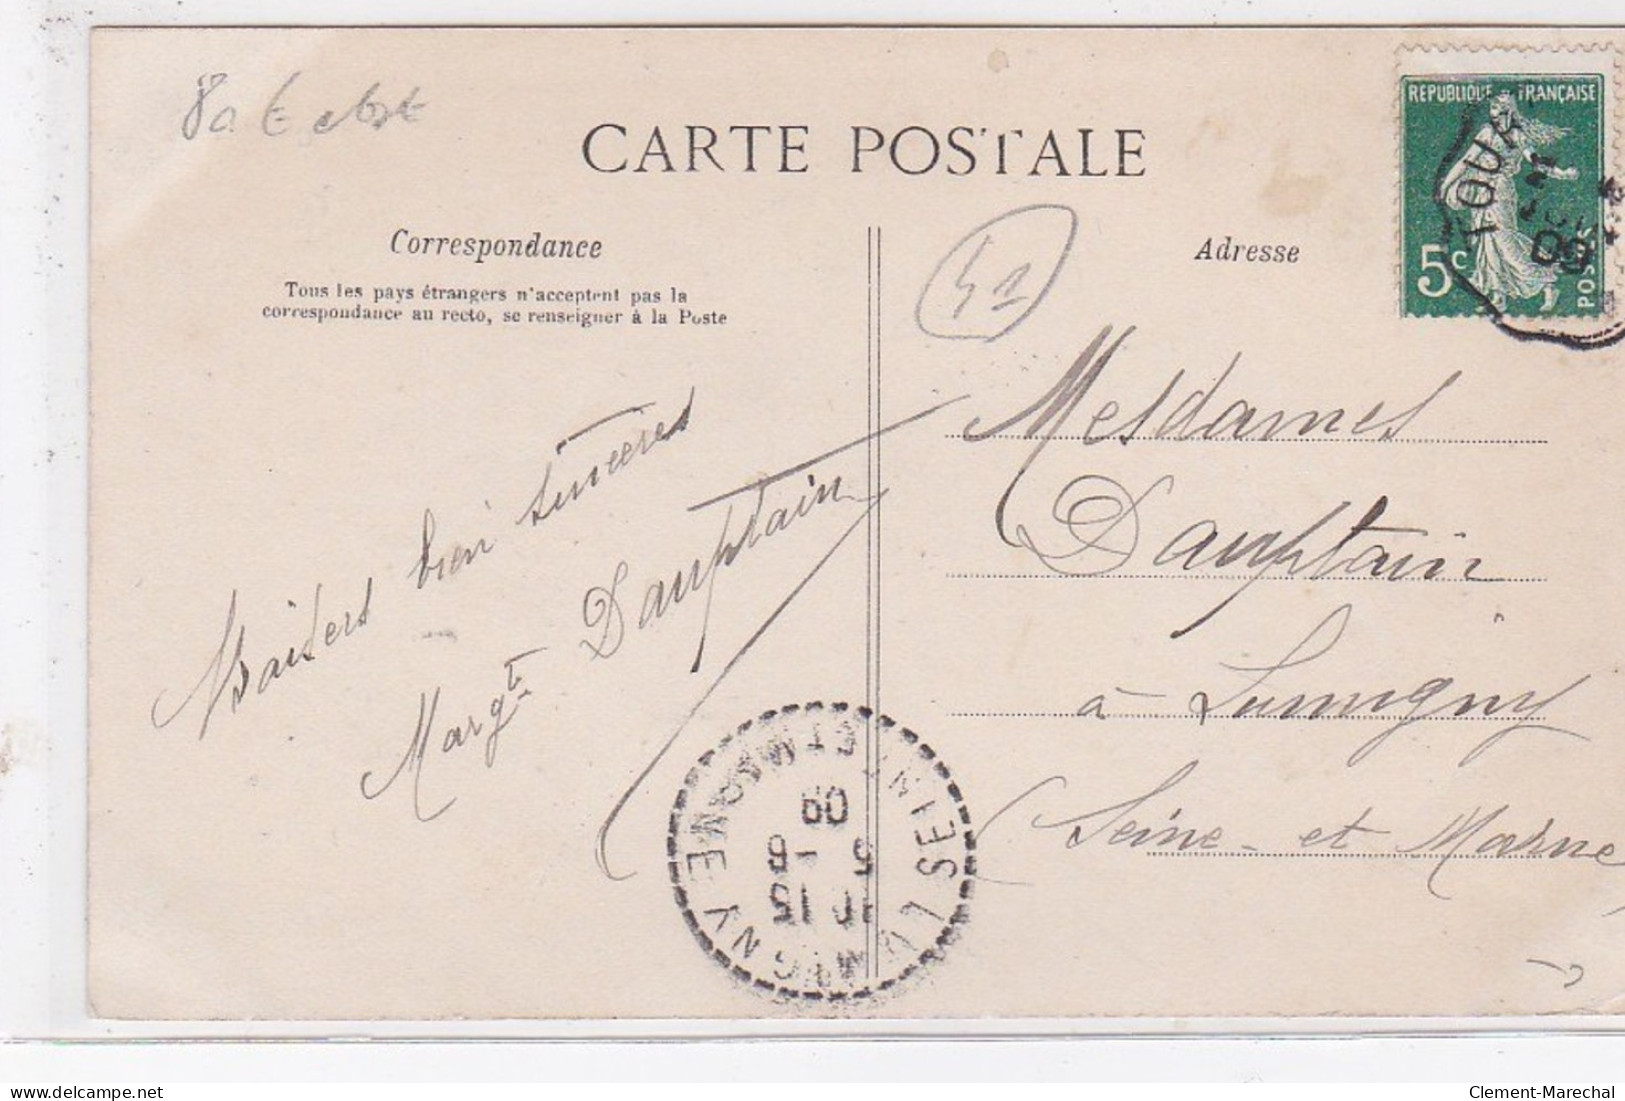 CARTE POSTALE
Correspondance
Tous les pays étrangers n'acceptent pas la
correspondance au recto, se renseigner à la Poste
Adresse
41
REPUBLIQUE FRANÇAISE
5c
POSTES
TOUR
09
Baisers bien sincères
Margte Dauptain
Mesdames
Dauptain
à Lumigny
(Seine-et Marne)
LUMIGNY
SEINE ET MARNE
5 - 8
09
Clement-Marechal